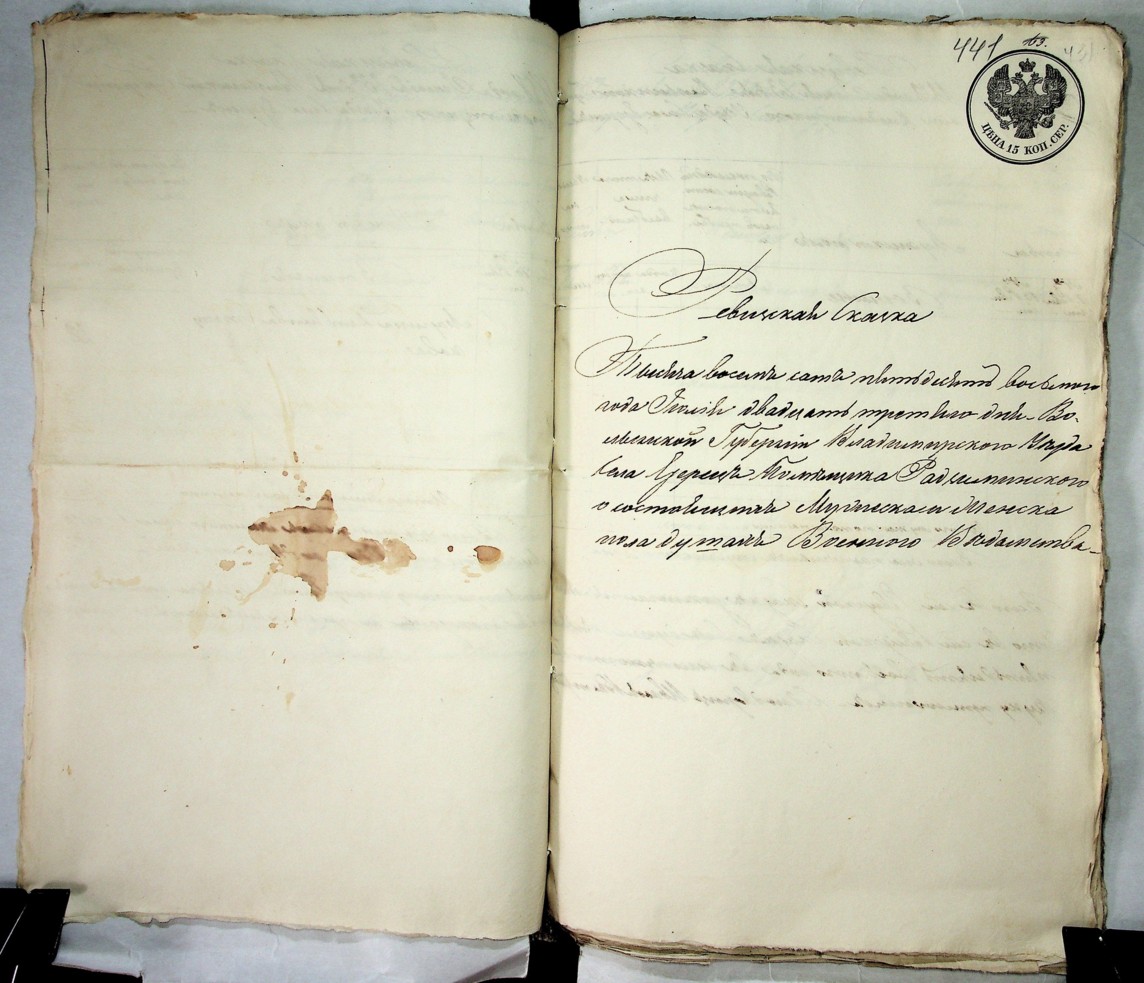 441 163. 431
ЦѢНА 15 КОП. СЕР.
Ревизская Сказка
Тысяча восемь сотъ пятьдесятъ восьмого
года Іюля двадцать третьяго дня. Во-
лынской Губерніи Владимирского Уѣзда
села Помѣщика Радзиминского
о состоящихъ Мужеска и Женска
пола душахъ Военного Вѣдомства